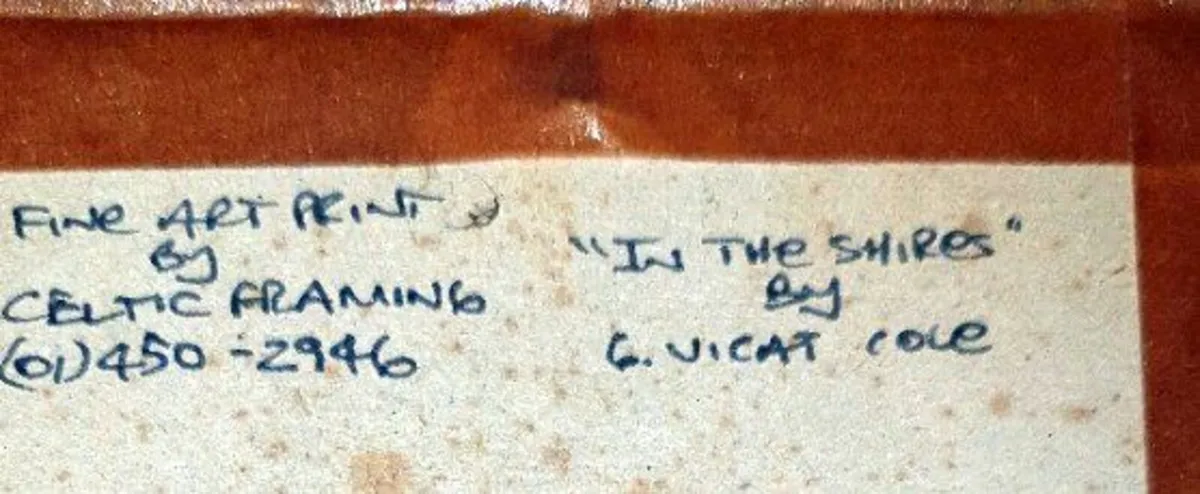 FINE ART PRINT
By
CELTIC FRAMING
(01) 450-2946
"IN THE SHIRES"
By
G. VICAT COLE